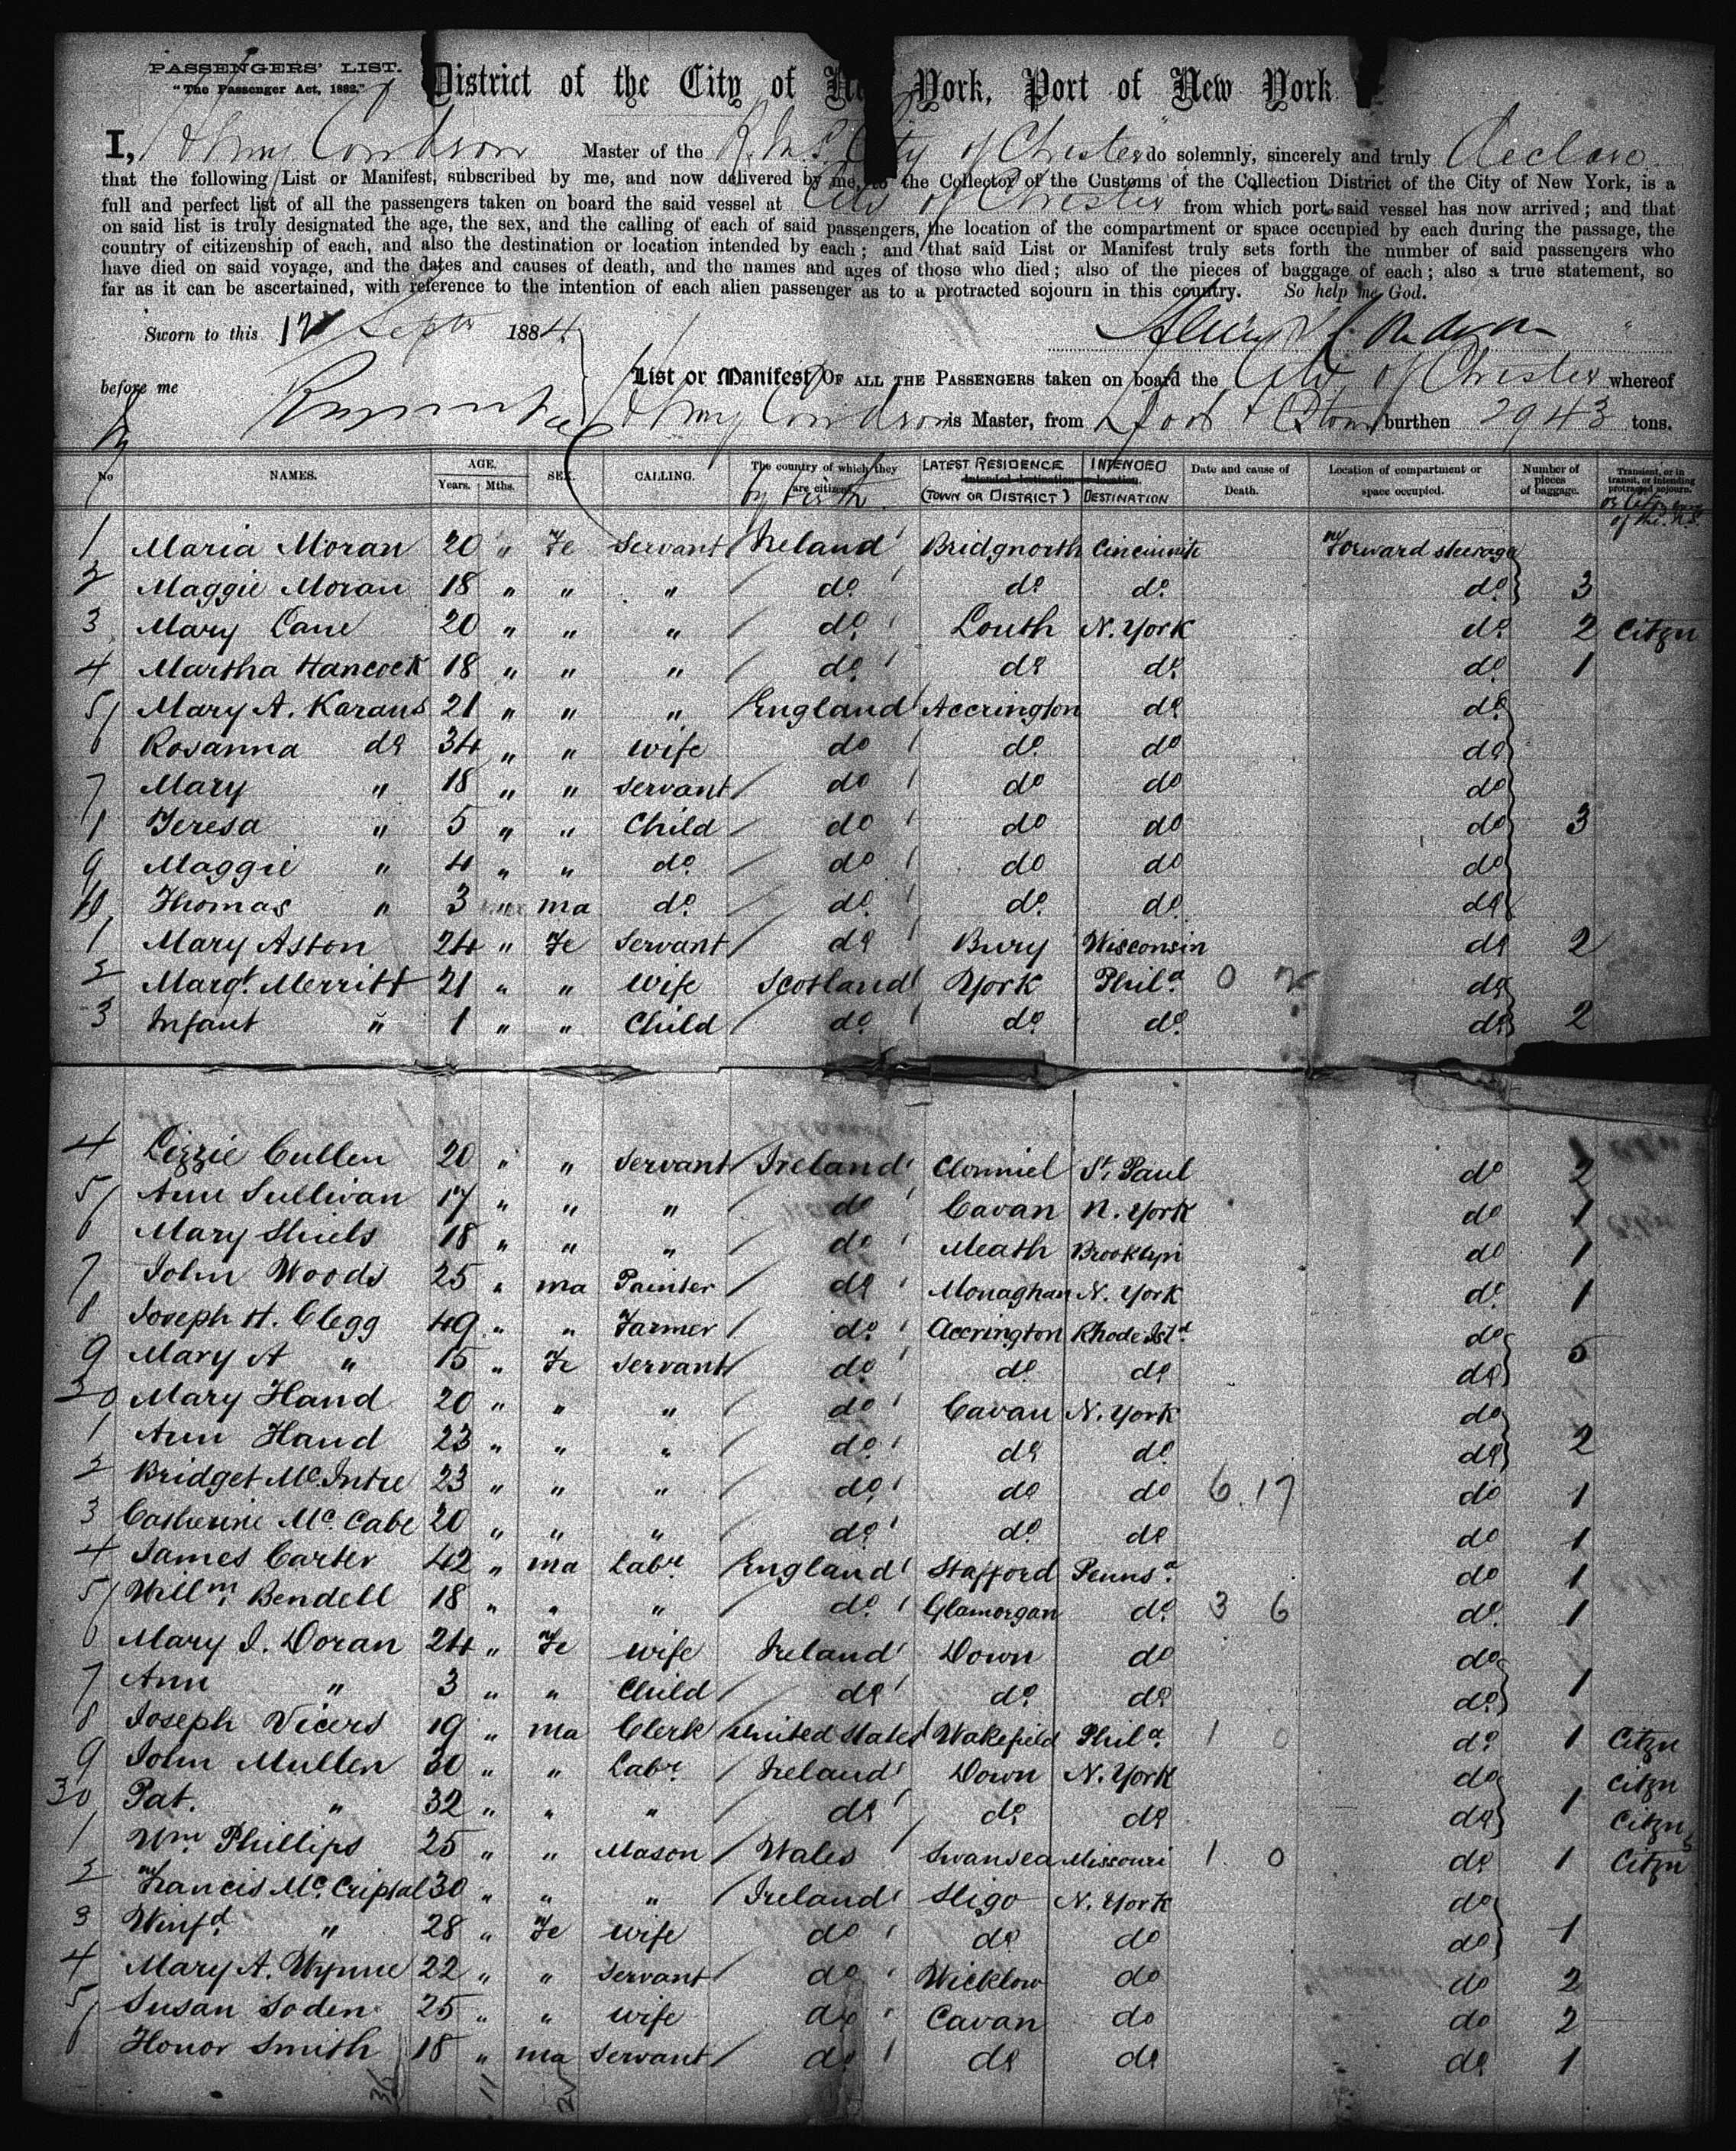 PASSENGERS' LIST.
"The Passenger Act, 1882."
District of the City of New York, Port of New York
I, Henry Condron Master of the R.M.S. City of Chester do solemnly, sincerely and truly declare
that the following List or Manifest, subscribed by me, and now delivered by me, to the Collector of the Customs of the Collection District of the City of New York, is a
full and perfect list of all the passengers taken on board the said vessel at City of Chester from which port said vessel has now arrived; and that
on said list is truly designated the age, the sex, and the calling of each of said passengers, the location of the compartment or space occupied by each during the passage, the
country of citizenship of each, and also the destination or location intended by each; and that said List or Manifest truly sets forth the number of said passengers who
have died on said voyage, and the dates and causes of death, and the names and ages of those who died; also of the pieces of baggage of each; also a true statement, so
far as it can be ascertained, with reference to the intention of each alien passenger as to a protracted sojourn in this country. So help me God.
Sworn to this 12 Septr 1884
before me
List or Manifest OF ALL THE PASSENGERS taken on board the City of Chester whereof
is Master, from Lpool & Qtown burthen 2943 tons.
No NAMES. AGE. Years. Mths. SEX. CALLING. The country of which they are citizens by birth LATEST RESIDENCE (TOWN OR DISTRICT) Intended destination or location. INTENDED DESTINATION Date and cause of Death. Location of compartment or space occupied. Number of pieces of baggage. Transient, or in transit, or intending protracted sojourn. or Citizens of the U.S.
1 Maria Moran 20 " Fe Servant Ireland Bridgnorth Cincinnite Forward steerage
2 Maggie Moran 18 " " " do do do do 3
3 Mary Cane 20 " " " do Louth N. York do 2 Citzn
4 Martha Hancock 18 " " " do do do do 1
5 Mary A. Karans 21 " " " England Accrington do do
6 Rosanna do 34 " " wife do do do do
7 Mary " 18 " " servant do do do do
8 Teresa " 5 " " Child do do do do 3
9 Maggie " 4 " " do do do do do
10 Thomas " 3 " ma do do do do do
1 Mary Aston 24 " Fe Servant do Bury Wisconsin do 2
2 Margt. Merritt 21 " " wife Scotland York Phila 0 do
3 Infant " 1 " " Child do do do do 2
4 Lizzie Cullen 20 " " servant Ireland Clonmel St. Paul do 2
5 Ann Sullivan 17 " " " do Cavan N. York do 1
6 Mary Shiels 18 " " " do Meath Brooklyn do 1
7 John Woods 25 " ma Painter do Monaghan N. York do 1
8 Joseph H. Clegg 49 " " Farmer do Accrington Rhode Isld do
9 Mary A " 15 " Fe servant do do do do 5
20 Mary Hand 20 " " " do Cavan N. York do
1 Ann Hand 23 " " " do do do do 2
2 Bridget McIntee 23 " " " do do do 6.17 do 1
3 Catherine McCabe 20 " " " do do do do 1
4 James Carter 42 " ma Labr. England Stafford Pennsa do 1
5 Willm. Bendell 18 " " " do Glamorgan do 3 6 do 1
6 Mary J. Doran 24 " Fe wife Ireland Down do do
7 Ann " 3 " " Child do do do do 1
8 Joseph Vicers 19 " ma Clerk United States Wakefield Phila 1 0 do 1 Citzn
9 John Mullen 30 " " Labr. Ireland Down N. York do Citzn
30 Pat. " 32 " " " do do do do 1 Citzn
1 Wm Phillips 25 " " Mason Wales Swansea Missouri 1 0 do 1 Citzn
2 Francis McCripsal 30 " " " Ireland Sligo N. York do
3 Winfd. " 28 " Fe wife do do do do 1
4 Mary A. Wynne 22 " " servant do Wicklow do do 2
5 Susan Soden 25 " " wife do Cavan do do 2
6 Honor Smith 18 " ma servant do do do do 1
36 11 25